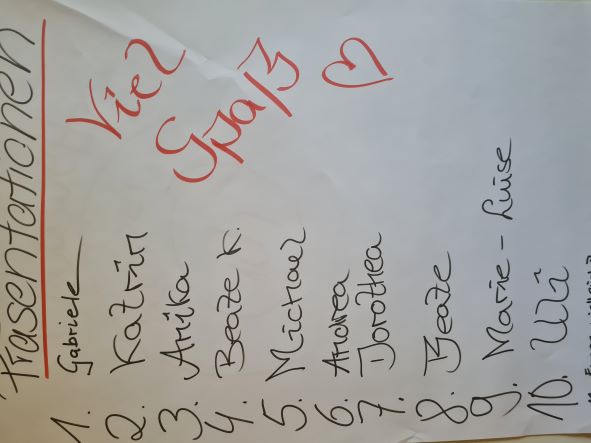 Präsentationen
1. Gabriele
2. Katrin
3. Annika
4. Beate K.
5. Michael
6. Andrea
7. Dorothea
8. Beate
9. Marie-Luise
10. Uli
Viel
Spaß